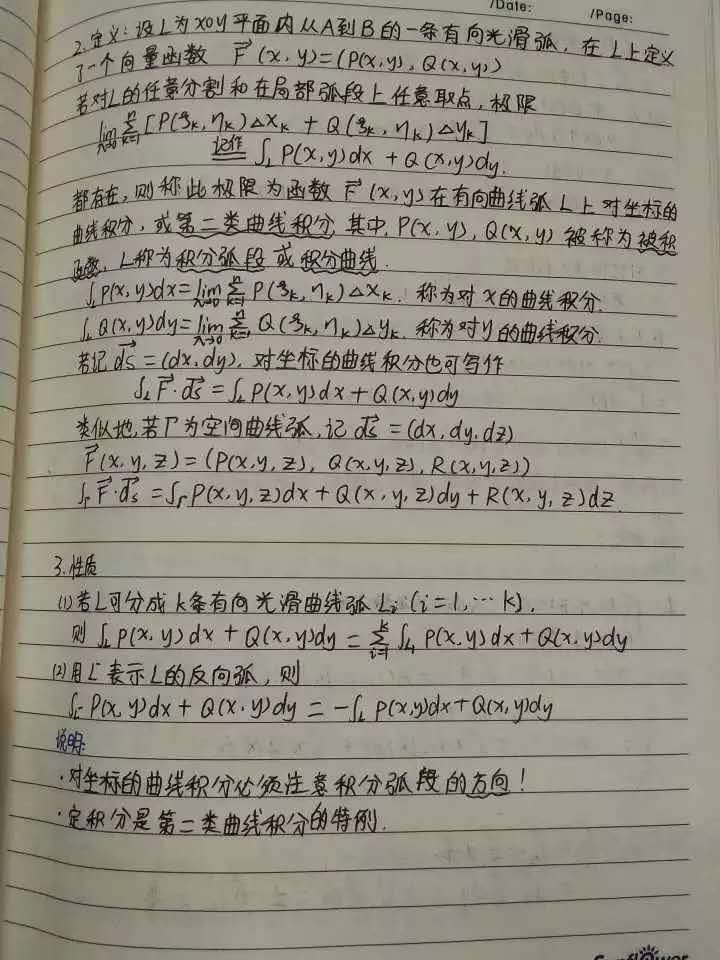 /Date: /Page:
2.定义:设L为xoy平面内从A到B的一条有向光滑弧,在L上定义
了一个向量函数 F⃗(x,y)=(P(x,y),Q(x,y))
若对L的任意分割和在局部弧段上任意取点,极限
lim λ→0 ∑ k=1 n [P(ξk,ηk)△xk + Q(ξk,ηk)△yk]
记作 ∫L P(x,y)dx + Q(x,y)dy.
都存在,则称此极限为函数 F⃗(x,y)在有向曲线弧L上对坐标的
曲线积分,或第二类曲线积分.其中,P(x,y),Q(x,y)被称为被积
函数,L称为积分弧段或积分曲线.
∫L P(x,y)dx = lim λ→0 ∑ k=1 n P(ξk,ηk)△xk. 称为对x的曲线积分.
∫L Q(x,y)dy = lim λ→0 ∑ k=1 n Q(ξk,ηk)△yk. 称为对y的曲线积分.
若记 ds⃗=(dx,dy),对坐标的曲线积分也可写作
∫L F⃗·ds⃗ = ∫L P(x,y)dx + Q(x,y)dy
类似地,若Γ为空间曲线弧,记 ds⃗=(dx,dy,dz)
F⃗(x,y,z)=(P(x,y,z),Q(x,y,z),R(x,y,z))
∫Γ F⃗·ds⃗ = ∫Γ P(x,y,z)dx + Q(x,y,z)dy + R(x,y,z)dz.
3.性质
(1)若L可分成k条有向光滑曲线弧Li(i=1,…k),
则 ∫L P(x,y)dx + Q(x,y)dy = ∑ i=1 k ∫Li P(x,y)dx + Q(x,y)dy
(2)用L⁻表示L的反向弧,则
∫L⁻ P(x,y)dx + Q(x,y)dy = -∫L P(x,y)dx + Q(x,y)dy
说明:
·对坐标的曲线积分必须注意积分弧段的方向!
·定积分是第二类曲线积分的特例.
Sunflower